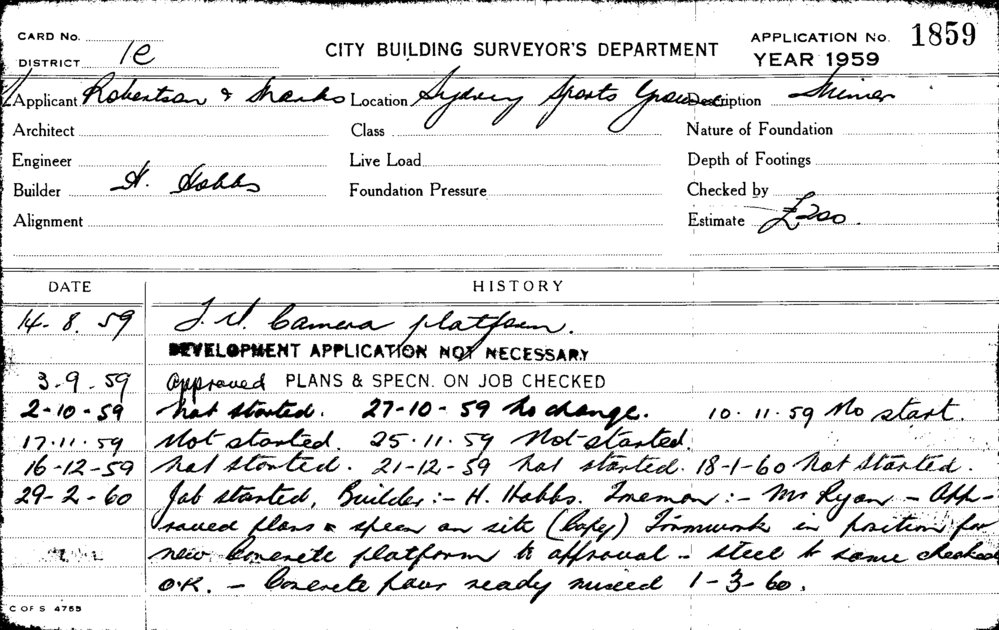 CARD No.
CITY BUILDING SURVEYOR'S DEPARTMENT
APPLICATION No. 1859
DISTRICT 1c
YEAR 1959
Applicant Robertson & Marks Location Sydney Sports Ground Description Minor
Architect Class Nature of Foundation
Engineer Live Load Depth of Footings
Builder H. Hobbs Foundation Pressure Checked by
Alignment Estimate £200.
DATE HISTORY
14.8.59 T.V. Camera platform.
DEVELOPMENT APPLICATION NOT NECESSARY
3.9.59 Approved PLANS & SPECN. ON JOB CHECKED
2-10-59 Not started. 27-10-59 No change. 10.11.59 No start.
17.11.59 Not started. 25.11.59 Not started.
16-12-59 Not started. 21-12-59 Not started. 18-1-60 Not started.
29-2-60 Job started, Builder:- H. Hobbs. Foreman:- Mr Ryan - App-
roved plans & specn on site (Copy) Formwork in position for
new Concrete platform to approval - steel to same checked
O.K. - Concrete pour ready 1-3-60.
C OF S 4755